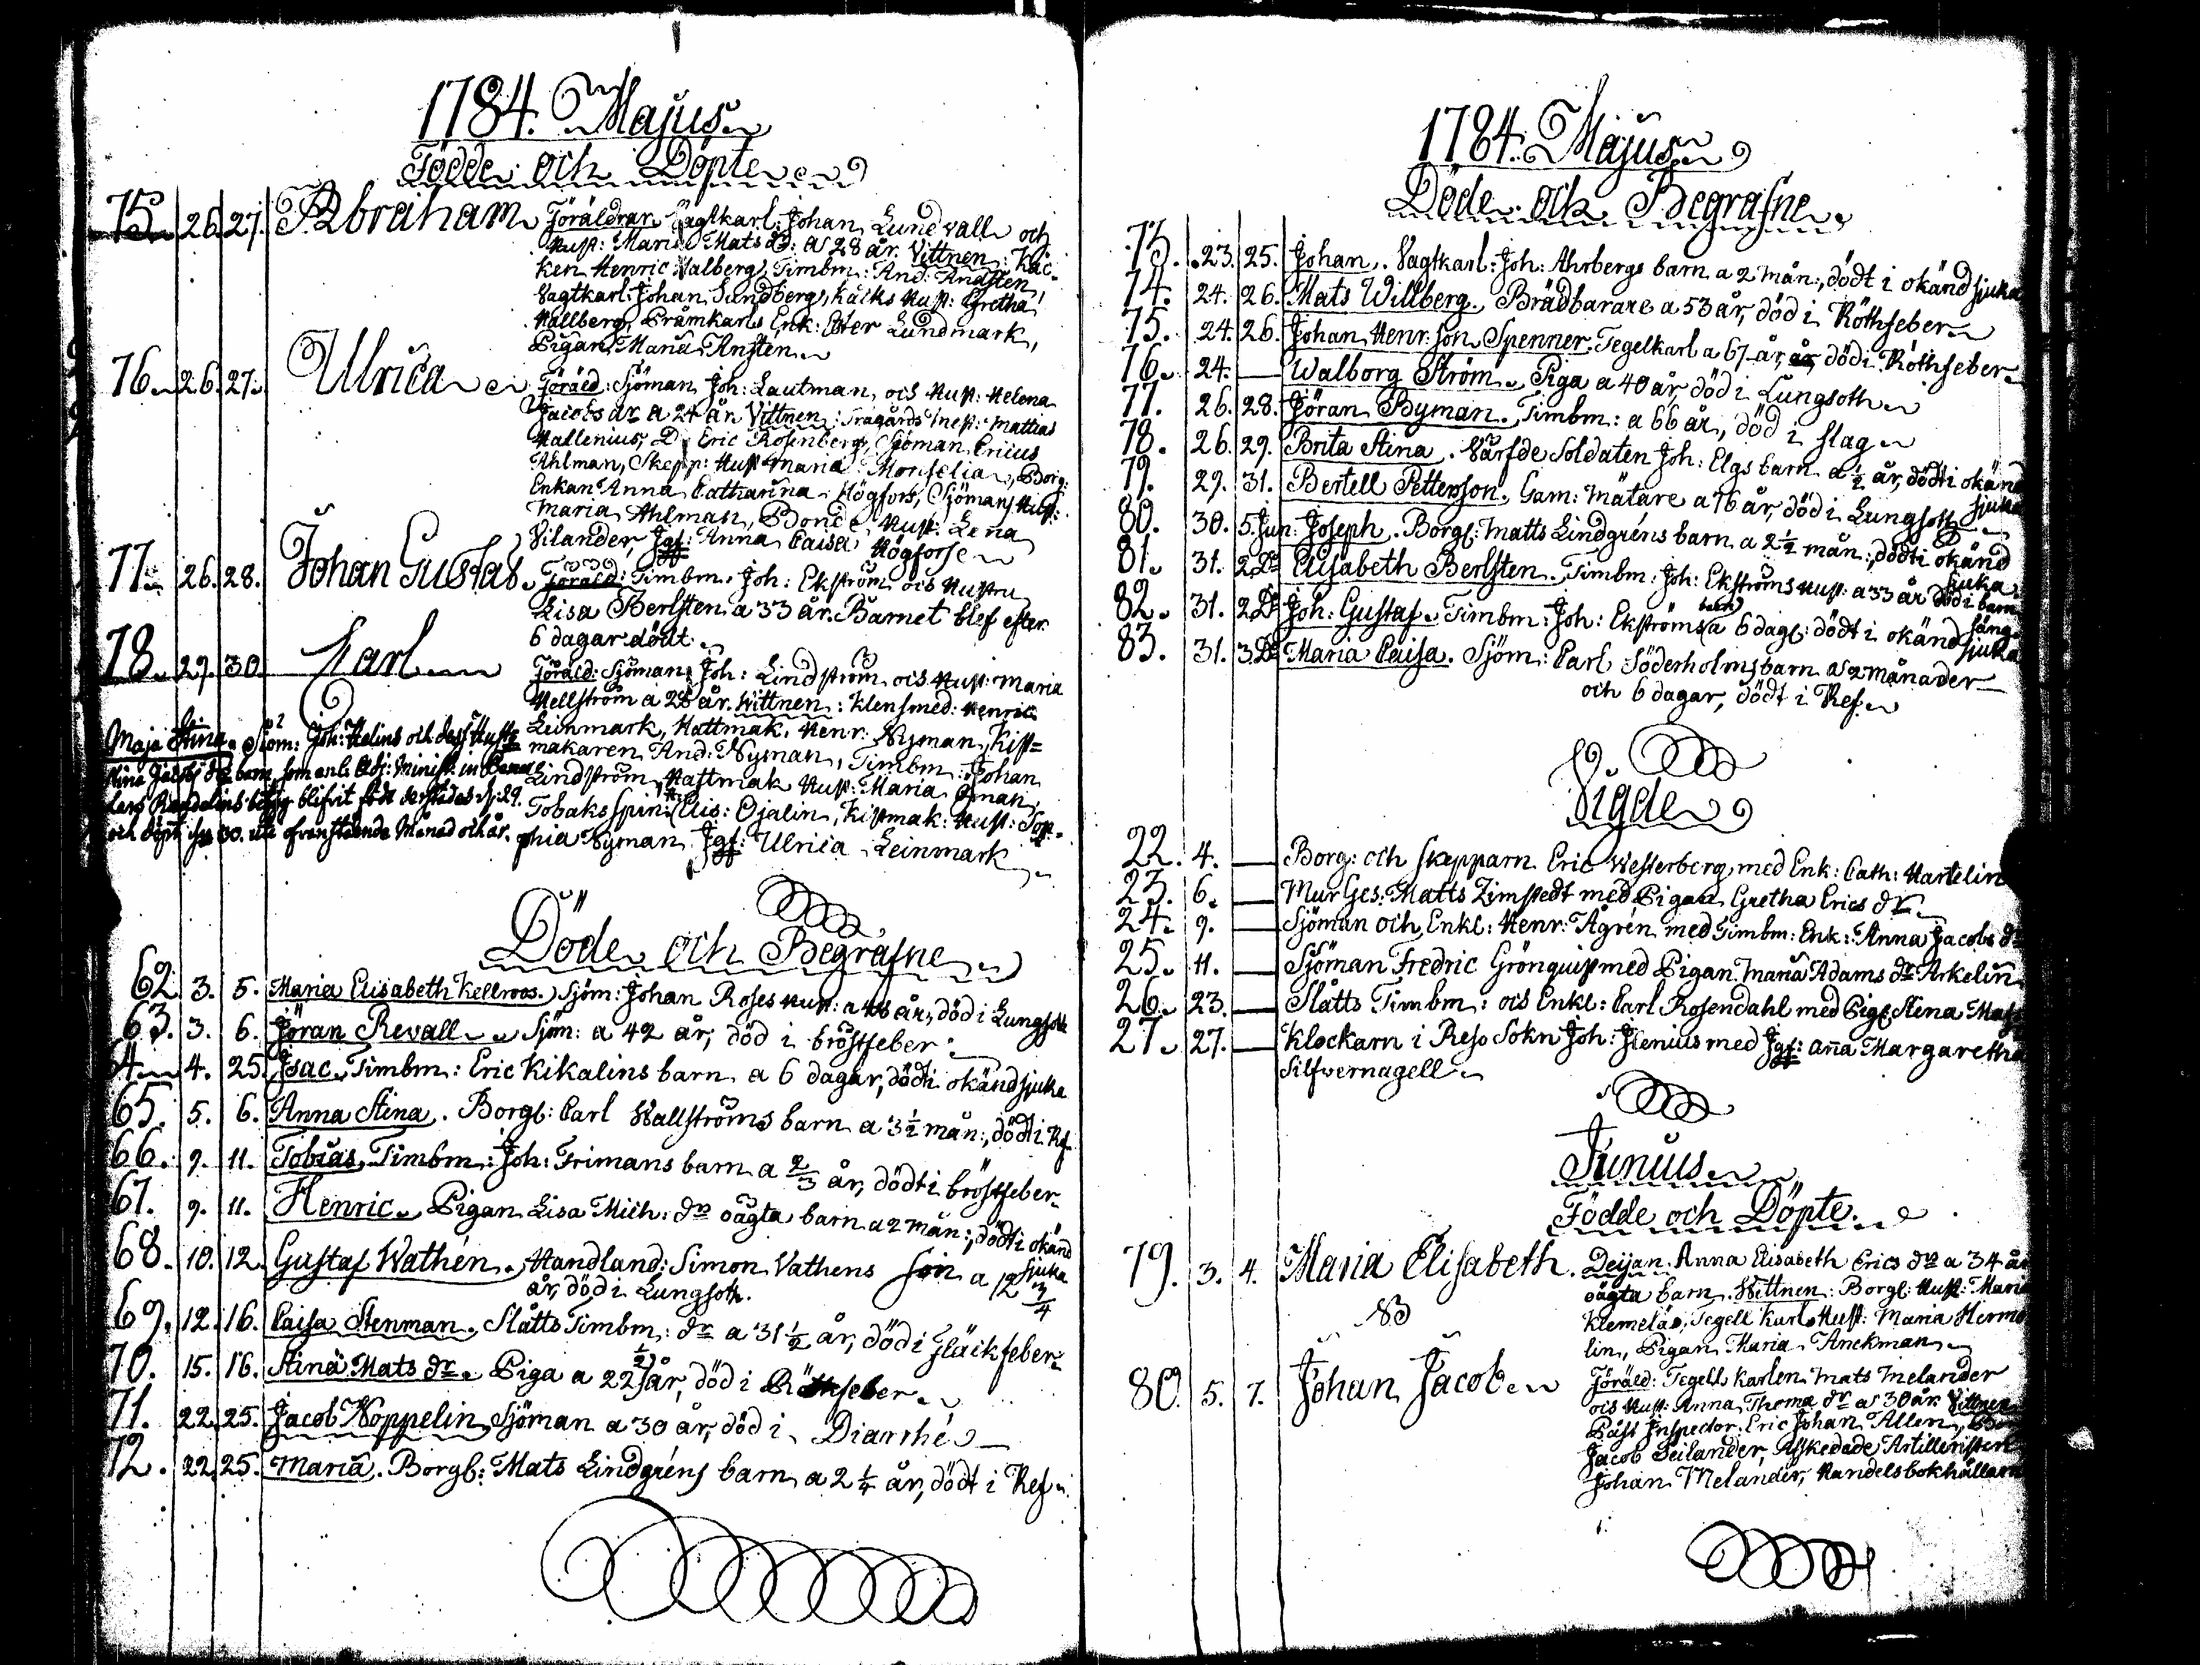 1784. Majus
Födde och Döpte
75. 26. 27. Abraham Föräldrar Vagtkarl: Johan Lundevall och
Hust: Maria Mats dr: a 28 år. Vittnen:
ken Henric Valberg, Timbm: And: Ansten,
Vagtkarl: Johan Sundberg, Hust: Gretha
Vallberg, Pråmkarls Enk: Lundmark,
Pigan Maria Ansten
76. 26. 27. Ulrica Föräld: Sjöman Joh: Lautman, och Hust: Helena
Jacobs dr a 24 år. Vittnen: Mattias
Wallenius, Eric Rosenberg, Sjöman Ericus
Ahlman, Skepp: Hust Maria Monselia, Borg:
Enkan Anna Catharina Högfors, Sjömans Hust:
Maria Ahlman, Hust: Lena
Vilander, Jgf: Anna Caisa Högfors
77. 26. 28. Johan Gustav. Föräld: Timbm. Joh: Ekström och Hustru
Lisa Berlsten a 33 år. Barnet blef efter
6 dagar dödt.
78. 29. 30. Karl Föräld: Sjöman Joh: Lindström och Hust: Maria
Hellström a 28 år. Wittnen: Klensmed: Henric
Leinmark, Hattmak. Henr: Nyman, Kist=
makaren And: Nyman, Timbm: Johan
Lindström, Hattmak Hust: Maria
Tobaksspin: Elis: Ojalin, Kistmak: Hust: Sop=
phia Nyman Jgf: Ulrica Leinmark
Maja Stina. Sjöm: Joh: Helins och dess Hustr
Stina Jacobs dr barn som enl:
blifvit född derstädes d: 29.
och döpt d: 30. uti ofvanstående Månad och år.
Döde och Begrafne
62. 3. 5. Maria Elisabeth Kellroos. Sjöm: Johan Roses Hust: a år, död i Lungsoth
63. 3. 6. Jöran Revall Sjöm: a 42 år, död i bröstfeber
64. 4. 25. Isac. Timbm: Eric Kikalins barn a 6 dagar, dödt i okänd sjuka
65. 5. 6. Anna Stina. Borgl: Carl Wallströms barn a 3½ mån:, dödt i Ref
66. 9. 11. Tobias. Timbm: Joh: Frimans barn a 2/3 år, dödt i bröstfeber
67. 9. 11. Henric. Pigan Lisa Mich: dr oägta barn a 2 mån:, dödt i okänd
sjuka
68. 10. 12. Gustaf Wathén. Handland: Simon Vathens son a 12 3/4
år, död i Lungsoth.
69. 12. 16. Caisa Stenman. Slåtts Timbm: dr a 31½ år, död i Fläckfeber
70. 15. 16. Stina Mats dr. Piga a 22½ år, död i Röthfeber
71. 22. 25. Jacob Noppelin Sjöman a 30 år, död i Diarrhé
72. 22. 25. Maria. Borgl: Mats Lindgréns barn a 2¼ år, dödt i Ref
1784. Majus
Döde och Begrafne
73. 23. 25. Johan. Vagtkarl: Joh: Ahrbergs barn a 2 mån:, dödt i okänd sjuka
74. 24. 26. Mats Willberg. Brädbärare a 53 år, död i Röthfeber
75. 24. 26. Johan Henr: son Spenner. Tegelkarl a 67 år, död i Röthfeber
76. 24. — Walborg Ström. Piga a 40 år, död i Lungsoth
77. 26. 28. Jöran Byman. Timbm: a 66 år, död i slag
78. 26. 29. Brita Stina. Värfde Soldaten Joh: Elgs barn a ½ år, dödt i okänd
sjuka
79. 29. 31. Bertell Petterson. Gam: Mätare a 76 år, död i Lungsoth
80. 30. 5. Jun: Joseph. Borgl: Matts Lindgréns barn a 2½ mån:, dödt i okänd
sjuka
81. 31. 2. Do Elisabeth Berlsten. Timbm: Joh: Ekströms Hust: a 33 år död i barn
säng
82. 31. 2. Do Joh: Gustaf. Timbm: Joh: Ekströms barn a 6 dag: dödt i okänd sjuka
83. 31. 3. Do Maria Caisa. Sjöm: Carl Söderholms barn a 2 månader
och 6 dagar, dödt i Ref
Vigde
22. 4. — Borg: och skepparn Eric Westerberg med Enk: Cath: Martelin
23. 6. — Mur Ges: Matts Zimstedt med Pigan Gretha Erics dr
24. 9. — Sjöman och Enkl: Henr: Ågrén med Timbm: Enk: Anna Jacobs dr
25. 11. — Sjöman Fredric Grönquist med Pigan Maria Adams dr Arkelin
26. 23. — Slåtts Timbm: och Enkl: Carl Rosendahl med Pig: Stina Mats
27. 27. — Klockarn i Reso Sokn Joh: Ilenius med Jgf: Anna Margaretha
Silfvernagell
Junius
Födde och Döpte.
79. 3. 4. Maria Elisabeth. Deijan Anna Elisabeth Erics dr a 34 år
oägta barn. Wittnen: Borgl: Hust: Maria
Klemelä, Tegell Karl Hust: Maria Hermo
lin, Pigan Maria Anckman
NB
80. 5. 7. Johan Jacob Föräld: Tegell karlen Mats Melander
och Hust: Anna Thoma dr a 30 år Vittnen
Inspector Eric Johan Allen,
Jacob Seilander, Afskedade Artilleristen
Johan Melander, Handelsbokhållaren